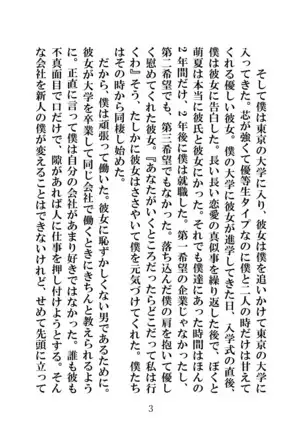 そして僕は東京の大学に入り、彼女は僕を追いかけて東京の大学に
入ってきた。芯が強くて優等生タイプなのに僕と二人の時だけは甘えて
くれる優しい彼女。僕の大学に彼女が進学してきた日、入学式の直後、
僕は彼女に告白した。長い長い恋愛の真似事を繰り返した後で、ぼくと
萌夏は本当に彼氏と彼女にかった。それでも僕達にあった時間はほんの
2年間だけ、2年後に僕は就職した。第一希望の企業じゃなかった。
第二希望でも、第三希望でもなかった。落ち込んだ僕の肩を抱いて優し
く慰めてくれた彼女。『あなたがいくところだったらどこだって私は行
くわ』そう、たしかに彼女はささやいて僕を元気づけてくれた。僕たち
はその時から同棲し始めた。
だから、僕は頑張って働いた。彼女に恥ずかしくない男であるために。
彼女が大学を卒業して同じ会社で働くときにきちんと教えられるよう
に。正直に言って僕は自分の会社があまり好きではなかった。誰も彼も
不真面目で口だけで、隙があれば人に仕事を押し付けようとする。そん
な会社を新人の僕が変えることはできないけれど、せめて先頭に立って
3